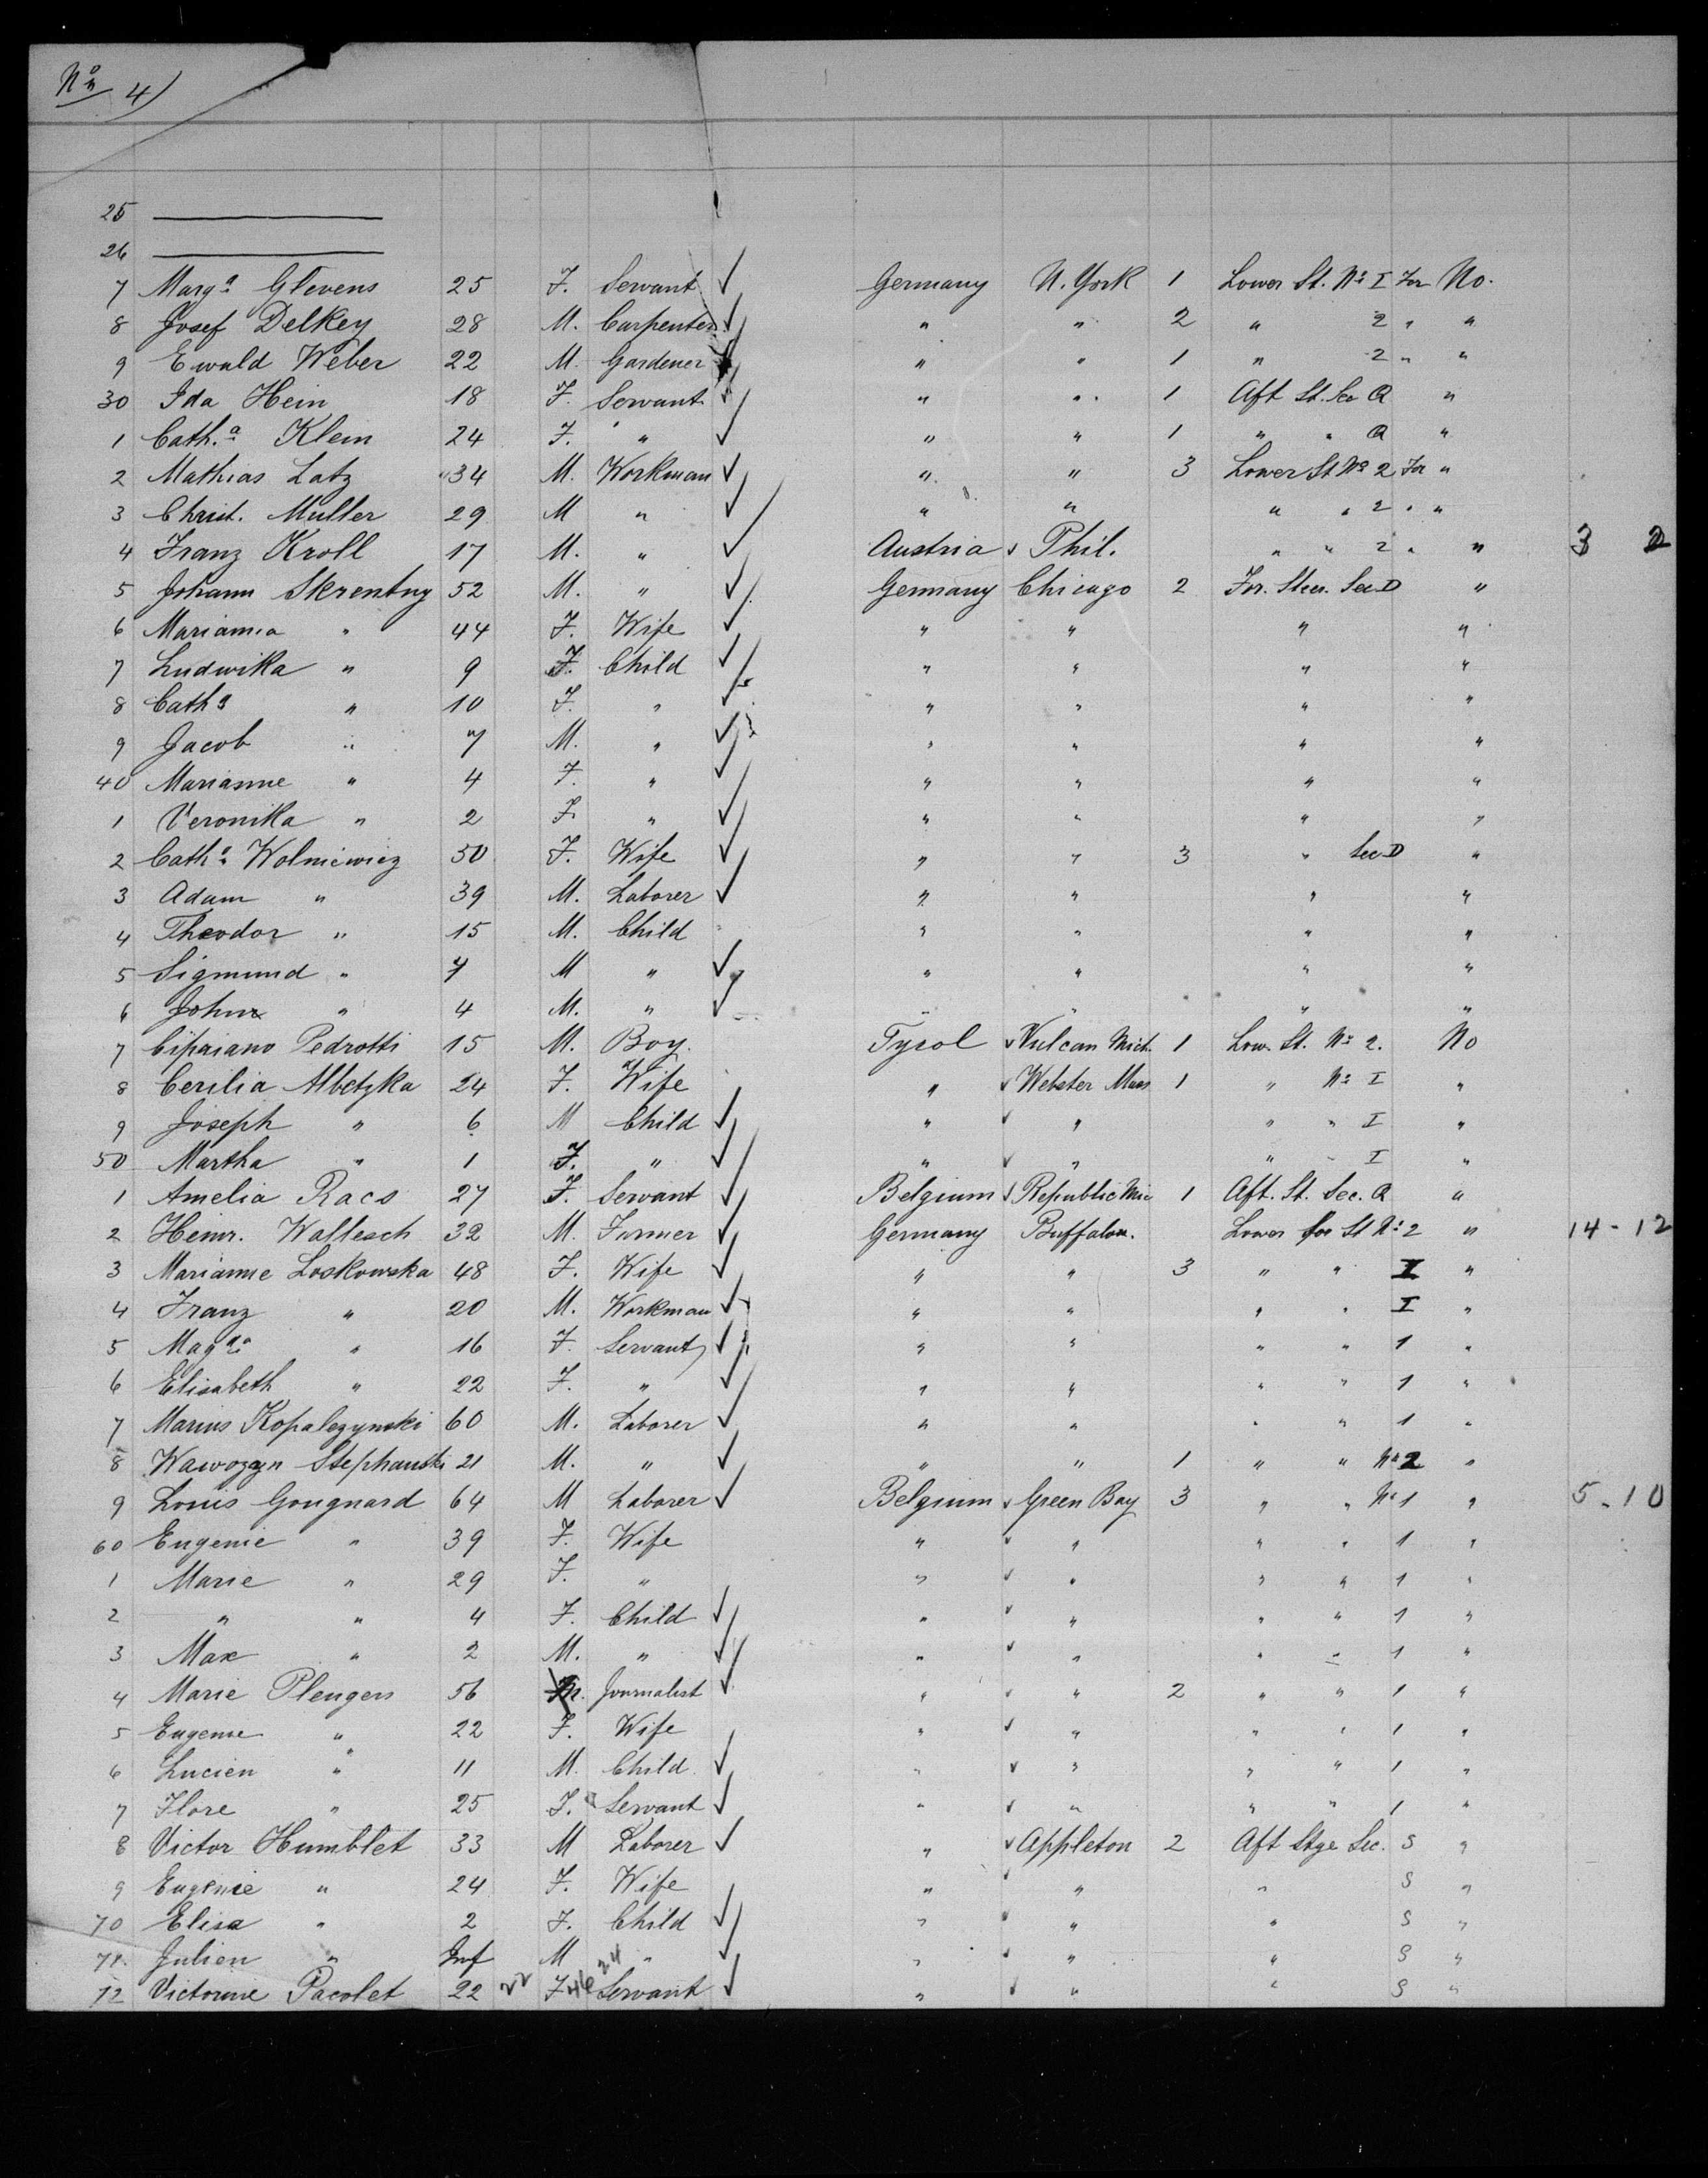 No 4)
25 ———
26 ———
7 Marga Glevens 25 F. Servant ✓ Germany N. York 1 Lower St. No I For No.
8 Josef Delkey 28 M. Carpenter ✓ " " 2 " 2 " "
9 Ewald Weber 22 M. Gardener ✓ " " 1 " 2 " "
30 Ida Hein 18 F. Servant ✓ " " 1 Aft St. Sec Q "
1 Cath.a Klein 24 F. " ✓ " " 1 " " Q "
2 Mathias Latz 34 M. Workman ✓ " " 3 Lower St No 2 For "
3 Christ. Muller 29 M " ✓ " " " " 2 " "
4 Franz Kroll 17 M. " ✓ Austria ✓ Phil. " " 2 " " 3 2
5 Johann Skrentny 52 M. " ✓ Germany Chicago 2 For. Steer. Sec D "
6 Marianna " 44 F. Wife ✓ " " " "
7 Ludwika " 9 F. Child ✓ " " " "
8 Catha " 10 F. " ✓ " " " "
9 Jacob " 7 M. " ✓ " " " "
40 Marianne " 4 F. " ✓ " " " "
1 Veronika " 2 F. " ✓ " " " "
2 Catha Wolniewicz 50 F. Wife ✓ " " 3 " Sec D "
3 Adam " 39 M. Laborer ✓ " " " "
4 Theodor " 15 M. Child " " " "
5 Sigmund " 7 M " ✓ " " " "
6 John " 4 M. " ✓ " " " "
7 Cipriano Pedrotti 15 M. Boy. Tyrol ✓ Vulcan Mich. 1 Low. St. No 2. No
8 Cecilia Albetzka 24 F. Wife " ✓ Webster Mass 1 " No I "
9 Joseph " 6 M Child ✓ " ✓ " " " I "
50 Martha " 1 F. " ✓ " ✓ " " " I "
1 Amelia Racs 27 F. Servant ✓ Belgium ✓ Republic Mic 1 Aft. St. Sec. Q "
2 Heinr. Wallesch 32 M. Farmer ✓ Germany Buffalo. Lower for St No 2 " 14 - 12
3 Marianne Loskowska 48 F. Wife ✓ " " 3 " " I "
4 Franz " 20 M. Workman ✓ " " " " I "
5 Magda " 16 F. Servant ✓ " " " " 1 "
6 Elisabeth " 22 F. " ✓ " " " " 1 "
7 Marius Kopalczynski 60 M. Laborer ✓ " " " " 1 "
8 Wawozyn Stephanski 21 M. " ✓ " " 1 " " No 2 "
9 Louis Gougnard 64 M Laborer ✓ Belgium ✓ Green Bay 3 " " No 1 " 5 - 10
60 Eugenie " 39 F. Wife " ✓ " " " 1 "
1 Marie " 29 F. " " ✓ " " " 1 "
2 " " 4 F. Child ✓ " ✓ " " " 1 "
3 Max " 2 M. " ✓ " ✓ " " " 1 "
4 Marie Plengers 56 M. Journalist ✓ " ✓ " 2 " " 1 "
5 Eugenie " 22 F. Wife " ✓ " " " 1 "
6 Lucien " 11 M. Child ✓ " ✓ " " " 1 "
7 Flore " 25 F. Servant ✓ " ✓ " " " 1 "
8 Victor Humblet 33 M Laborer ✓ " ✓ Appleton 2 Aft Stge Sec. S "
9 Eugenie " 24 F. Wife " ✓ " " S "
70 Elisa " 2 F. Child ✓ " ✓ " " S "
71. Julien " Inf M " ✓ " ✓ " " S "
72 Victorine Pacolet 22 22 F 46 24 Servant ✓ " ✓ " " S "